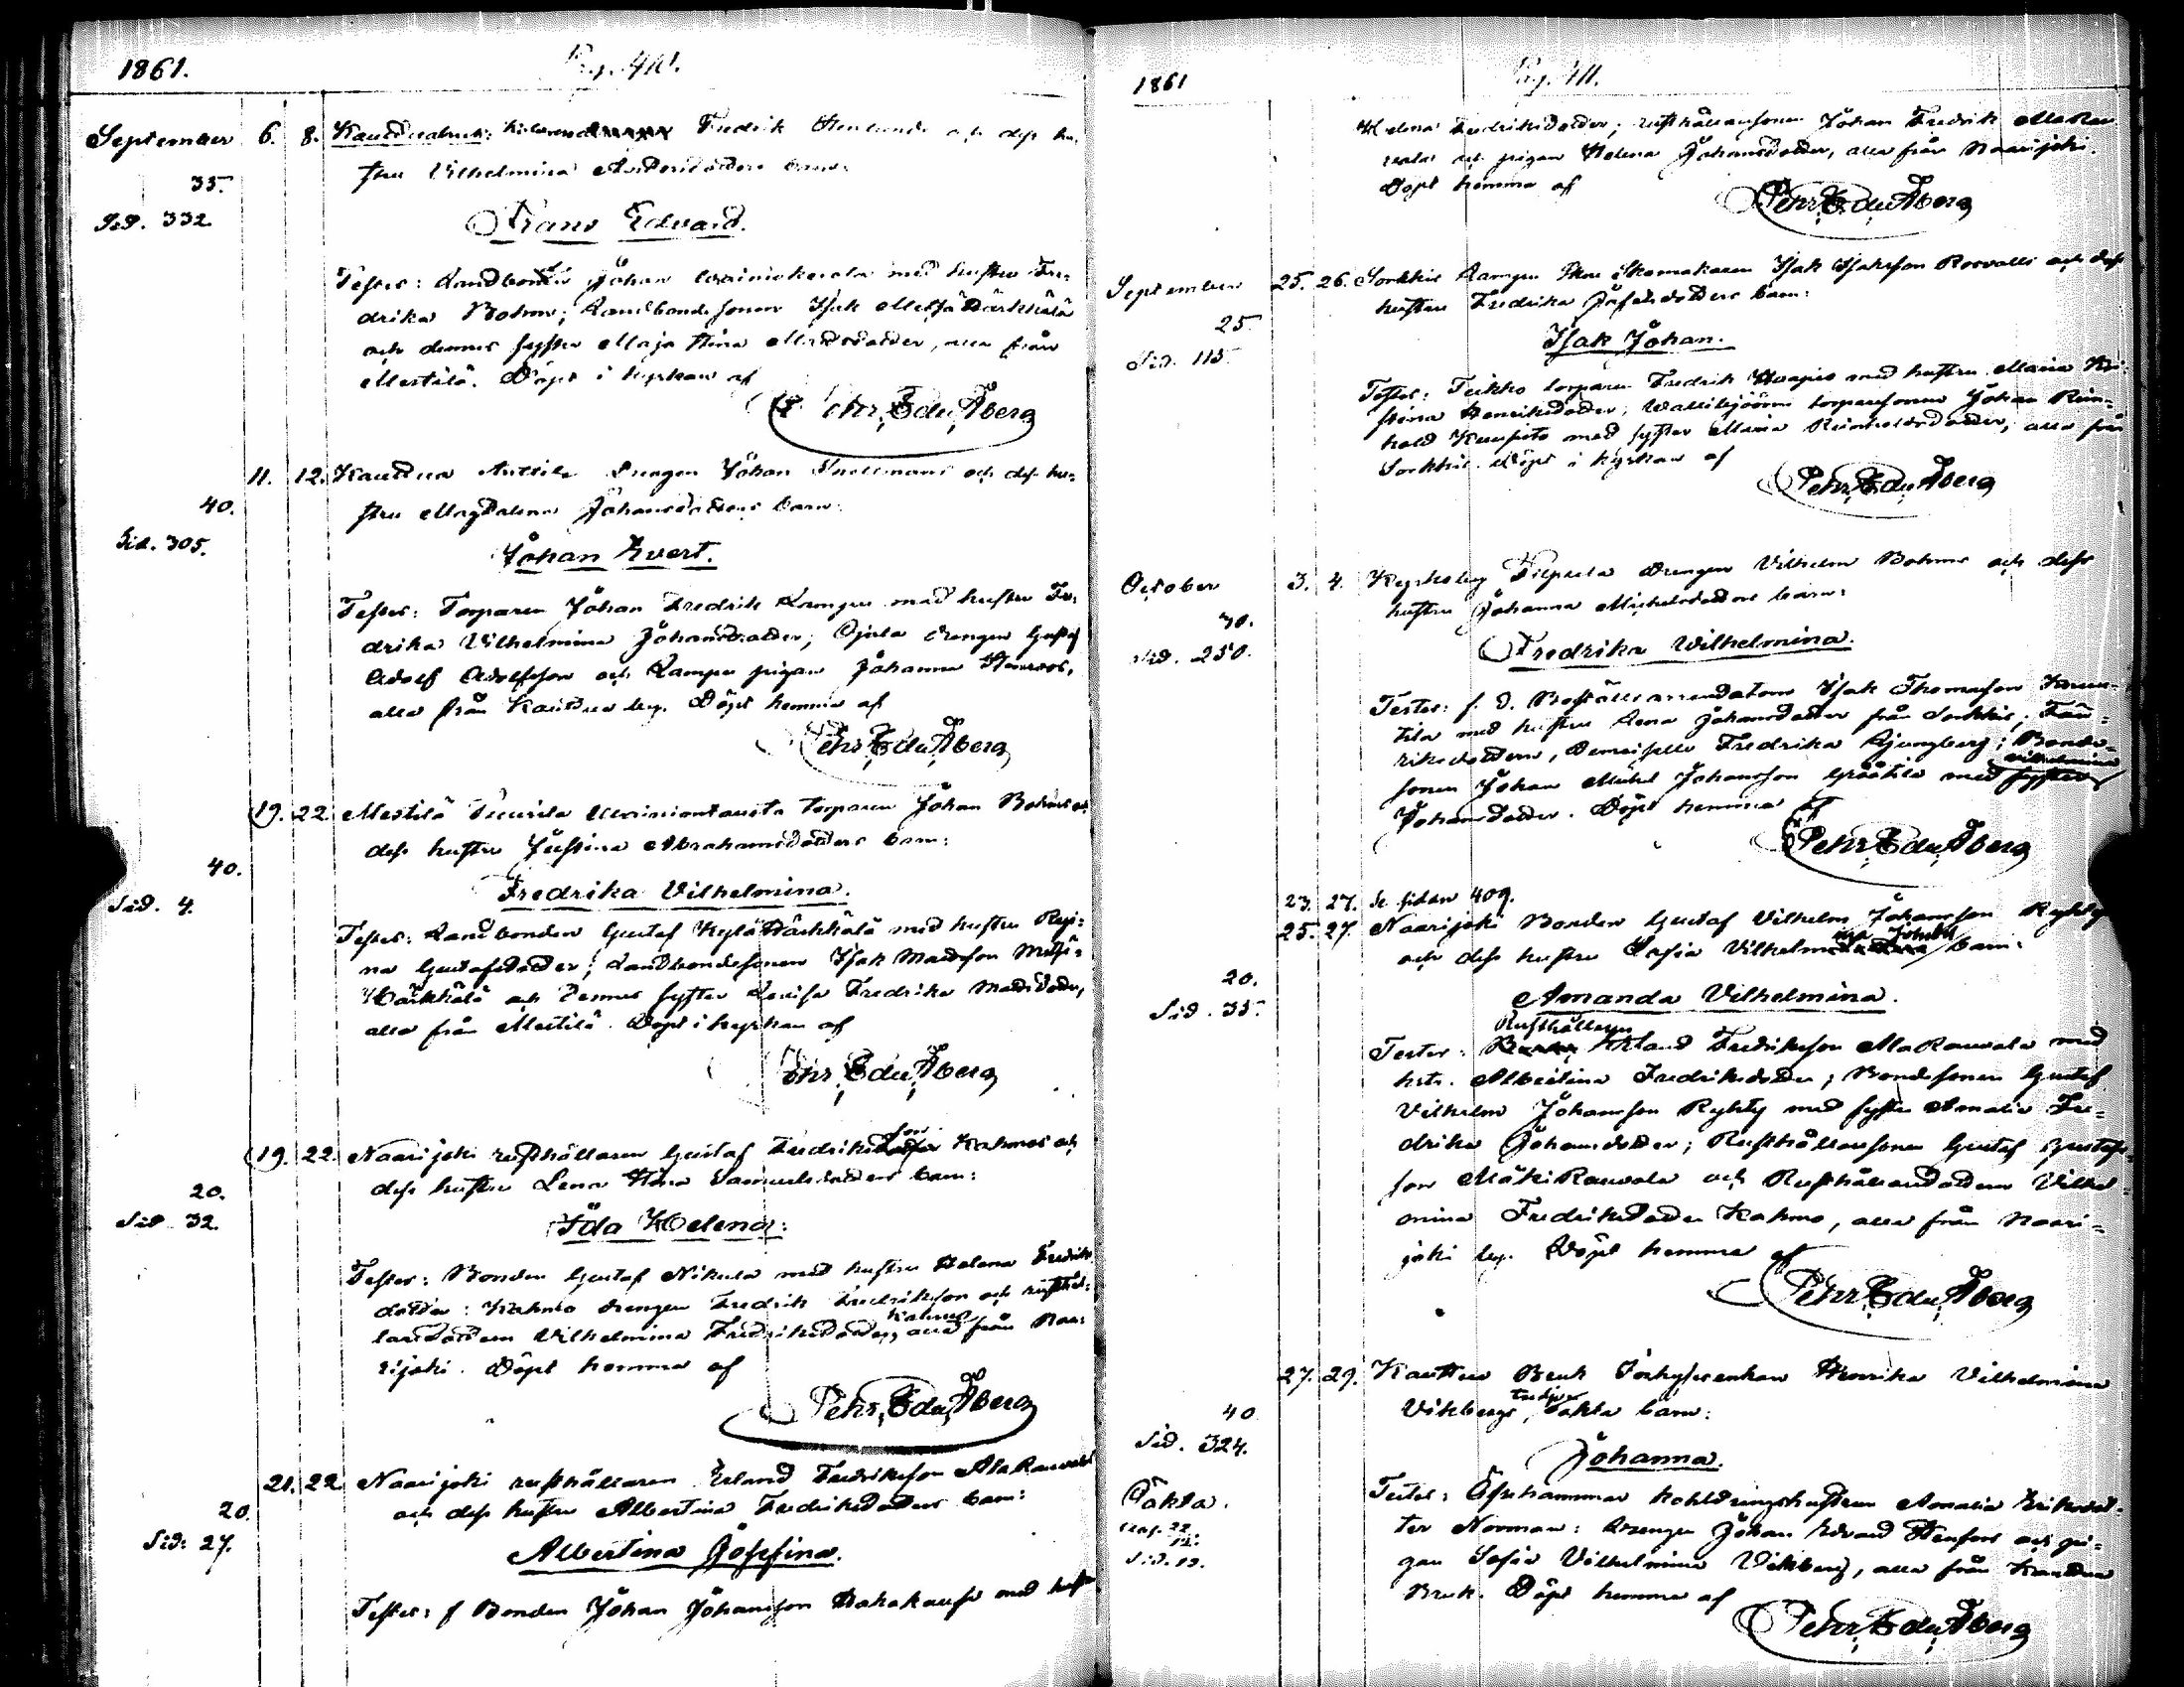 1861.
Pag. 410.
September 6. 8. Kauttua bruk: Fredrik och dess hu-
35. stru Vilhelmina Andersdotters barn:
Sid. 332.
Frans Edvard.
Testes: Landbonden Johan med hustru Fre-
drika Bohm; Landbondesonen Isak Metsä Härkkälä
och dennes syster Maja Stina Madsdotter, alla från
Mestilä. Döpt i kyrkan af
Pehr Edu Åberg
11. 12. Kauttua Anttila Drengen Johan Snellmans och dess hu-
40. stru Magdalena Johansdotters barn:
Sid. 305.
Johan Evert.
Testes: Torparen Johan Fredrik Lampen med hustru Fre-
drika Vilhelmina Johansdotter; Ojala drengen Gustaf
Adolf Adolfsson och Lampen pigan Johanna Henroos,
alla från Kauttua by. Döpt hemma af
Pehr Edu Åberg
19. 22. Mestilä torparen Johan Bohms och
dess hustru Justina Abrahamsdotters barn:
40.
Sid. 4.
Fredrika Vilhelmina.
Testes: Landbonden Gustaf Kylä Härkkälä med hustru Regi-
na Gustafsdotter; Landbondesonen Isak Madsson Metsä-
Härkkälä och dennes syster Lovisa Fredrika Madsdotter,
alla från Mestilä. Döpt i kyrkan af
Pehr Edu Åberg
19. 22. Naarijoki rusthållaren Gustaf Fredriksson Kahmos och
dess hustru Lena Stina Samuelsdotters barn:
20.
Sid. 32.
Ida Helena:
Testes: Bonden Gustaf Nikula med hustru Helena Fredriks-
dotter: Kahmo drengen Fredrik Fredriksson och rusthål-
laredottern Vilhelmina Fredriksdotter Kahmo, alla från Naa-
rijoki. Döpt hemma af
Pehr Edu Åberg
21. 22. Naarijoki rusthållaren Erland Fredriksson Ala Rauvola
och dess hustru Albertina Fredriksdotters barn:
20.
Sid: 27.
Albertina Josefina.
Testes: f Bonden Johan Johansson med hustru
1861
Pag. 411.
Helena Fredriksdotter; rusthållaresonen Johan Fredrik Ala Rau-
vola och pigan Helena Johansdotter, alla från Naarijoki.
Döpt hemma af
Pehr Edu Åberg
September 25. 26. Sorkkis Skomakaren Isak Isaksson Rosvalls och dess
hustru Fredrika Josefsdotters barn:
25
Sid. 115.
Isak Johan.
Testes: Teikko torparen Fredrik med hustru Maria Kri-
stina Henriksdotter; torparesonen Johan Rein-
hold med syster Maria Reinholdsdotter, alla från
Sorkkis. Döpt i kyrkan af
Pehr Edu Åberg
October 3. 4. Kyrkoby Drengen Vilhelm Bohms och dess
hustru Johanna Michelsdotters barn:
30.
Sid. 250.
Fredrika Wilhelmina.
Testes: f. d. Boställsarrendatorn Isak Thomasson
med hustru Lena Johansdotter från Sorkkis;
Demoiselle Fredrika Ljungberg; Bonde-
sonen Johan Michel Johansson med syster Vilhelmina
Johansdotter. Döpt hemma af
Pehr Edu Åberg
23. 27. Se sidan 409.
25. 27. Naarijoki Bonden Gustaf Vilhelm Johansson Ryhty
och dess hustru Sofia Vilhelmina barn:
20.
Sid. 35.
Amanda Vilhelmina.
Testes: Rusthållaren Erland Fredriksson Ala Rauvola med
hstr. Albertina Fredriksdotter; Bondesonen Gustaf
Vilhelm Johansson Ryhty med syster Amalia Fre-
drika Johansdotter; Rusthållaresonen Gustaf Gustafs-
son Mäki Rauvola och Rusthållaredottern Vilhel-
mina Fredriksdotter Kahmo, alla från Naari-
joki by. Döpt hemma af
Pehr Edu Åberg
27. 29. Kauttua Bruk Henrika Vilhelmina
Vikbergs, tredje oäkta barn:
40
Sid. 324.
Johanna.
Oäkta.
Testes: hustrun Amalia Eriksdot-
ter Norman: Drengen Johan Edvard Stenfors och pi-
gan Sofia Vilhelmina Vikberg, alla från Kauttua
Bruk. Döpt hemma af
Sid. 12.
Pehr Edu Åberg